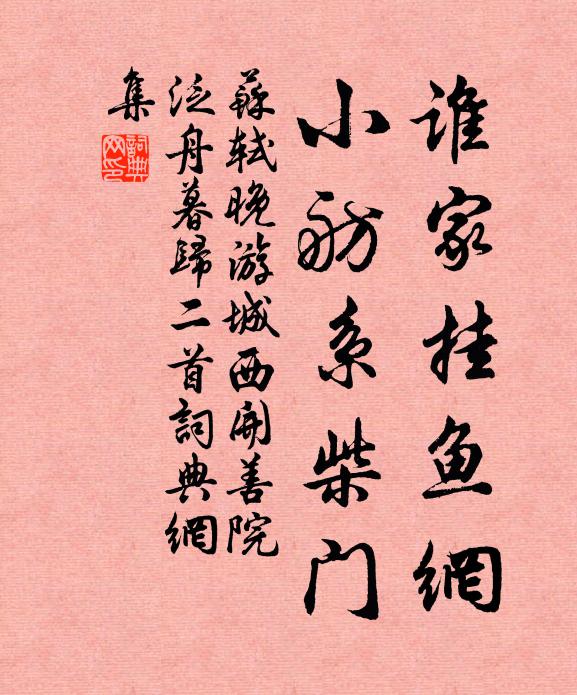 谁家挂鱼網
小舫系柴门
蘇轼晚游城西開善院
泛舟暮歸二首詞典網
集
詞典網印